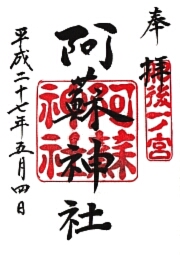 奉拝
肥後一ノ宮
阿蘇神社
阿蘇神社
平成二十七年五月四日